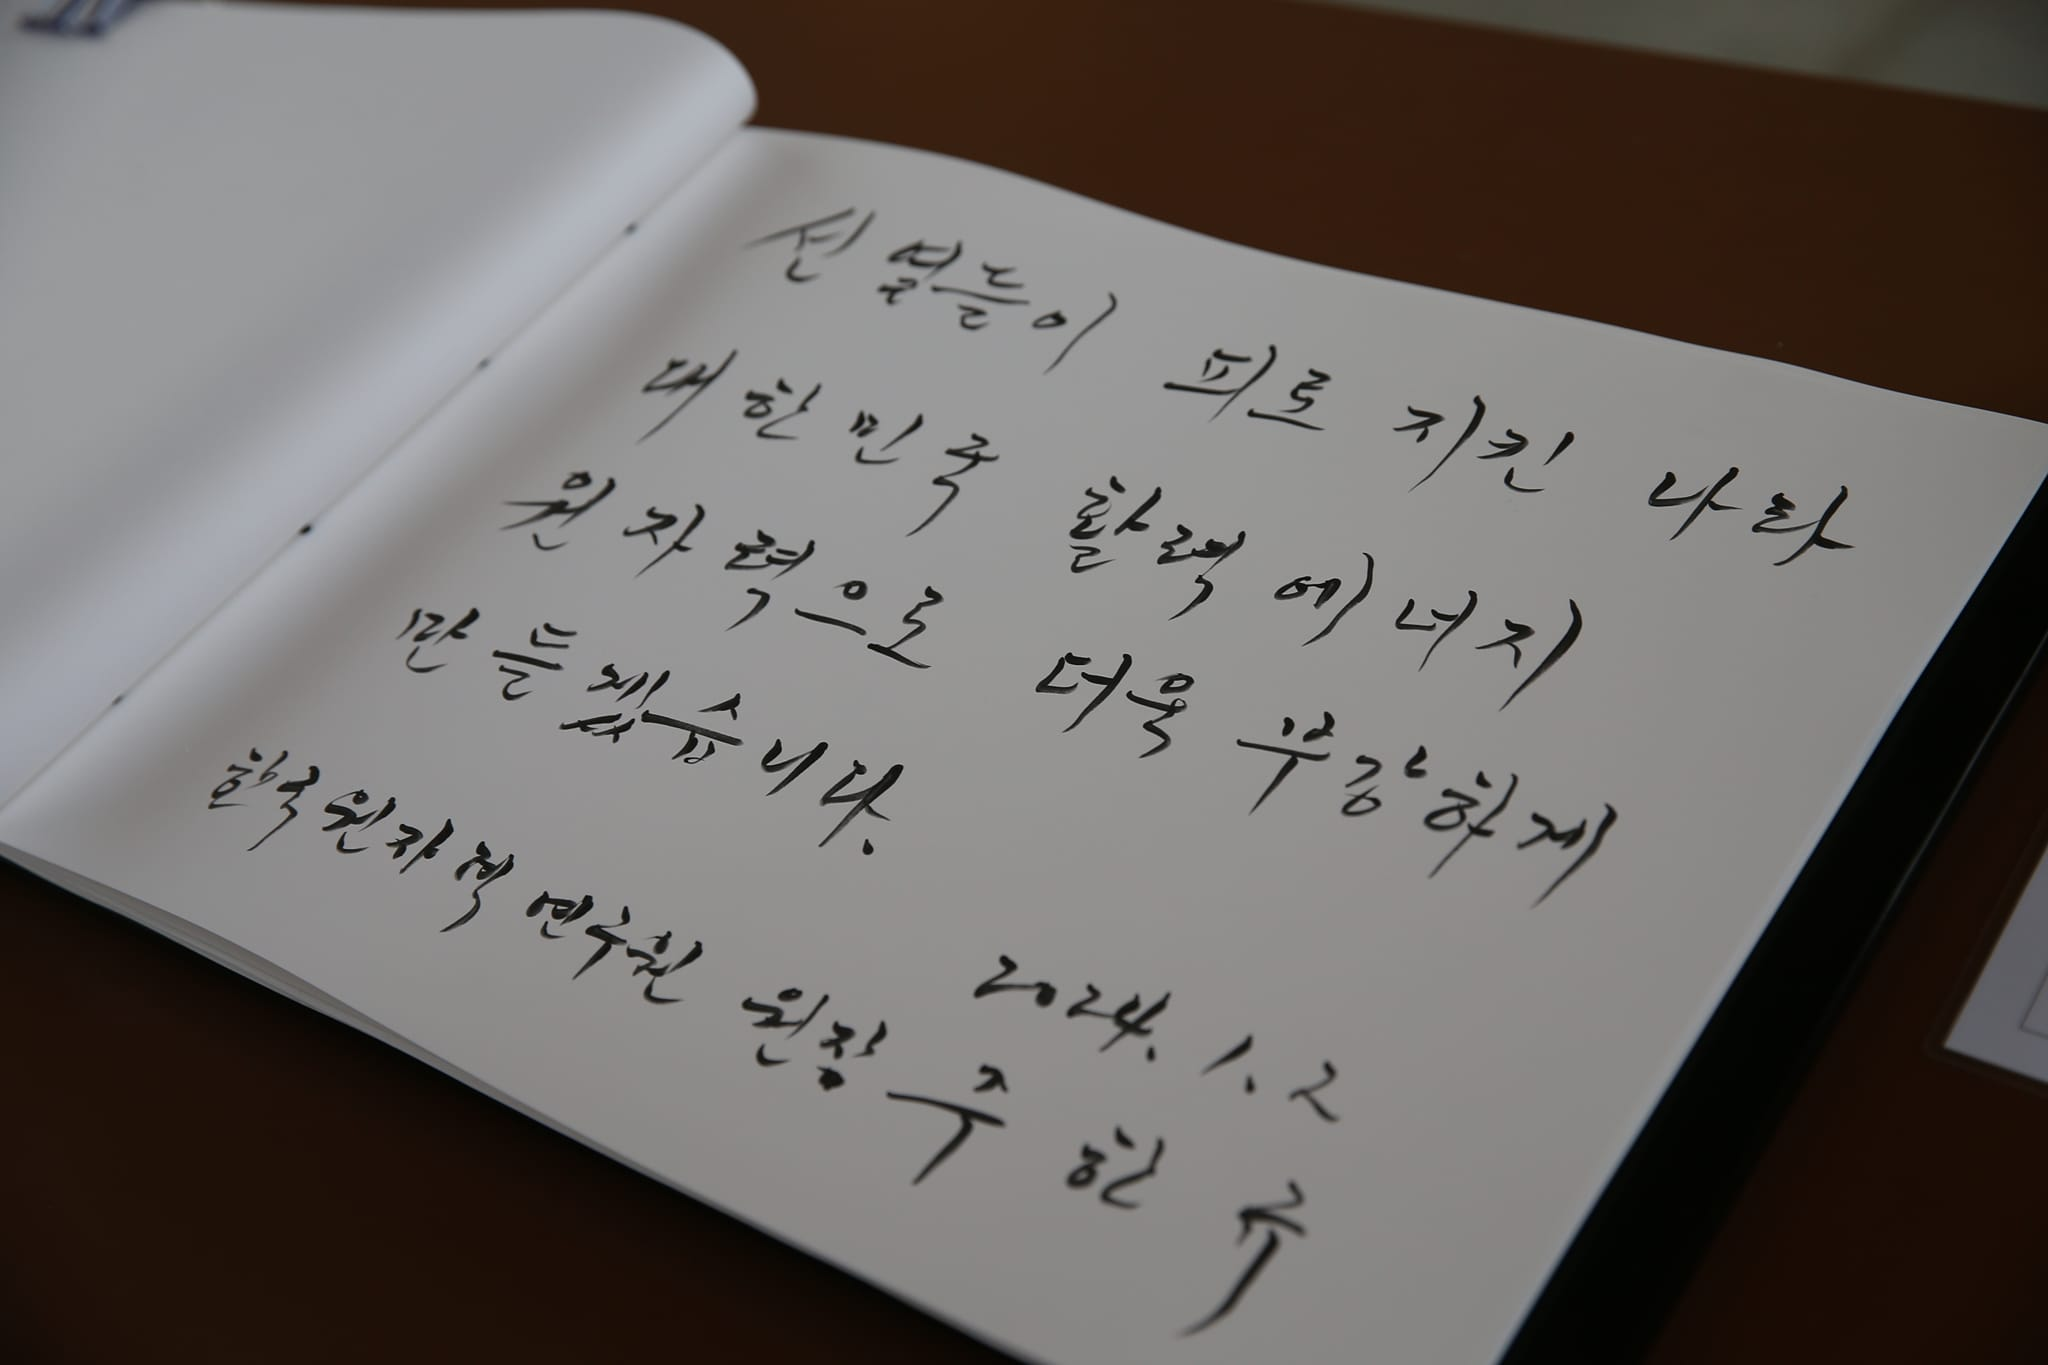 선열들이 피로 지킨 나라
대한민국 활력 에너지
원자력으로 더욱 부강하게
만들겠습니다.
2024. 1. 2
한국원자력연구원 원장 주한규